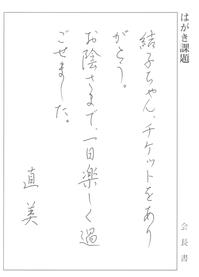 はがき課題
結子ちゃん、チケットをあり
がとう。
お陰さまで、一日楽しく過
ごせました。
直美
会長書